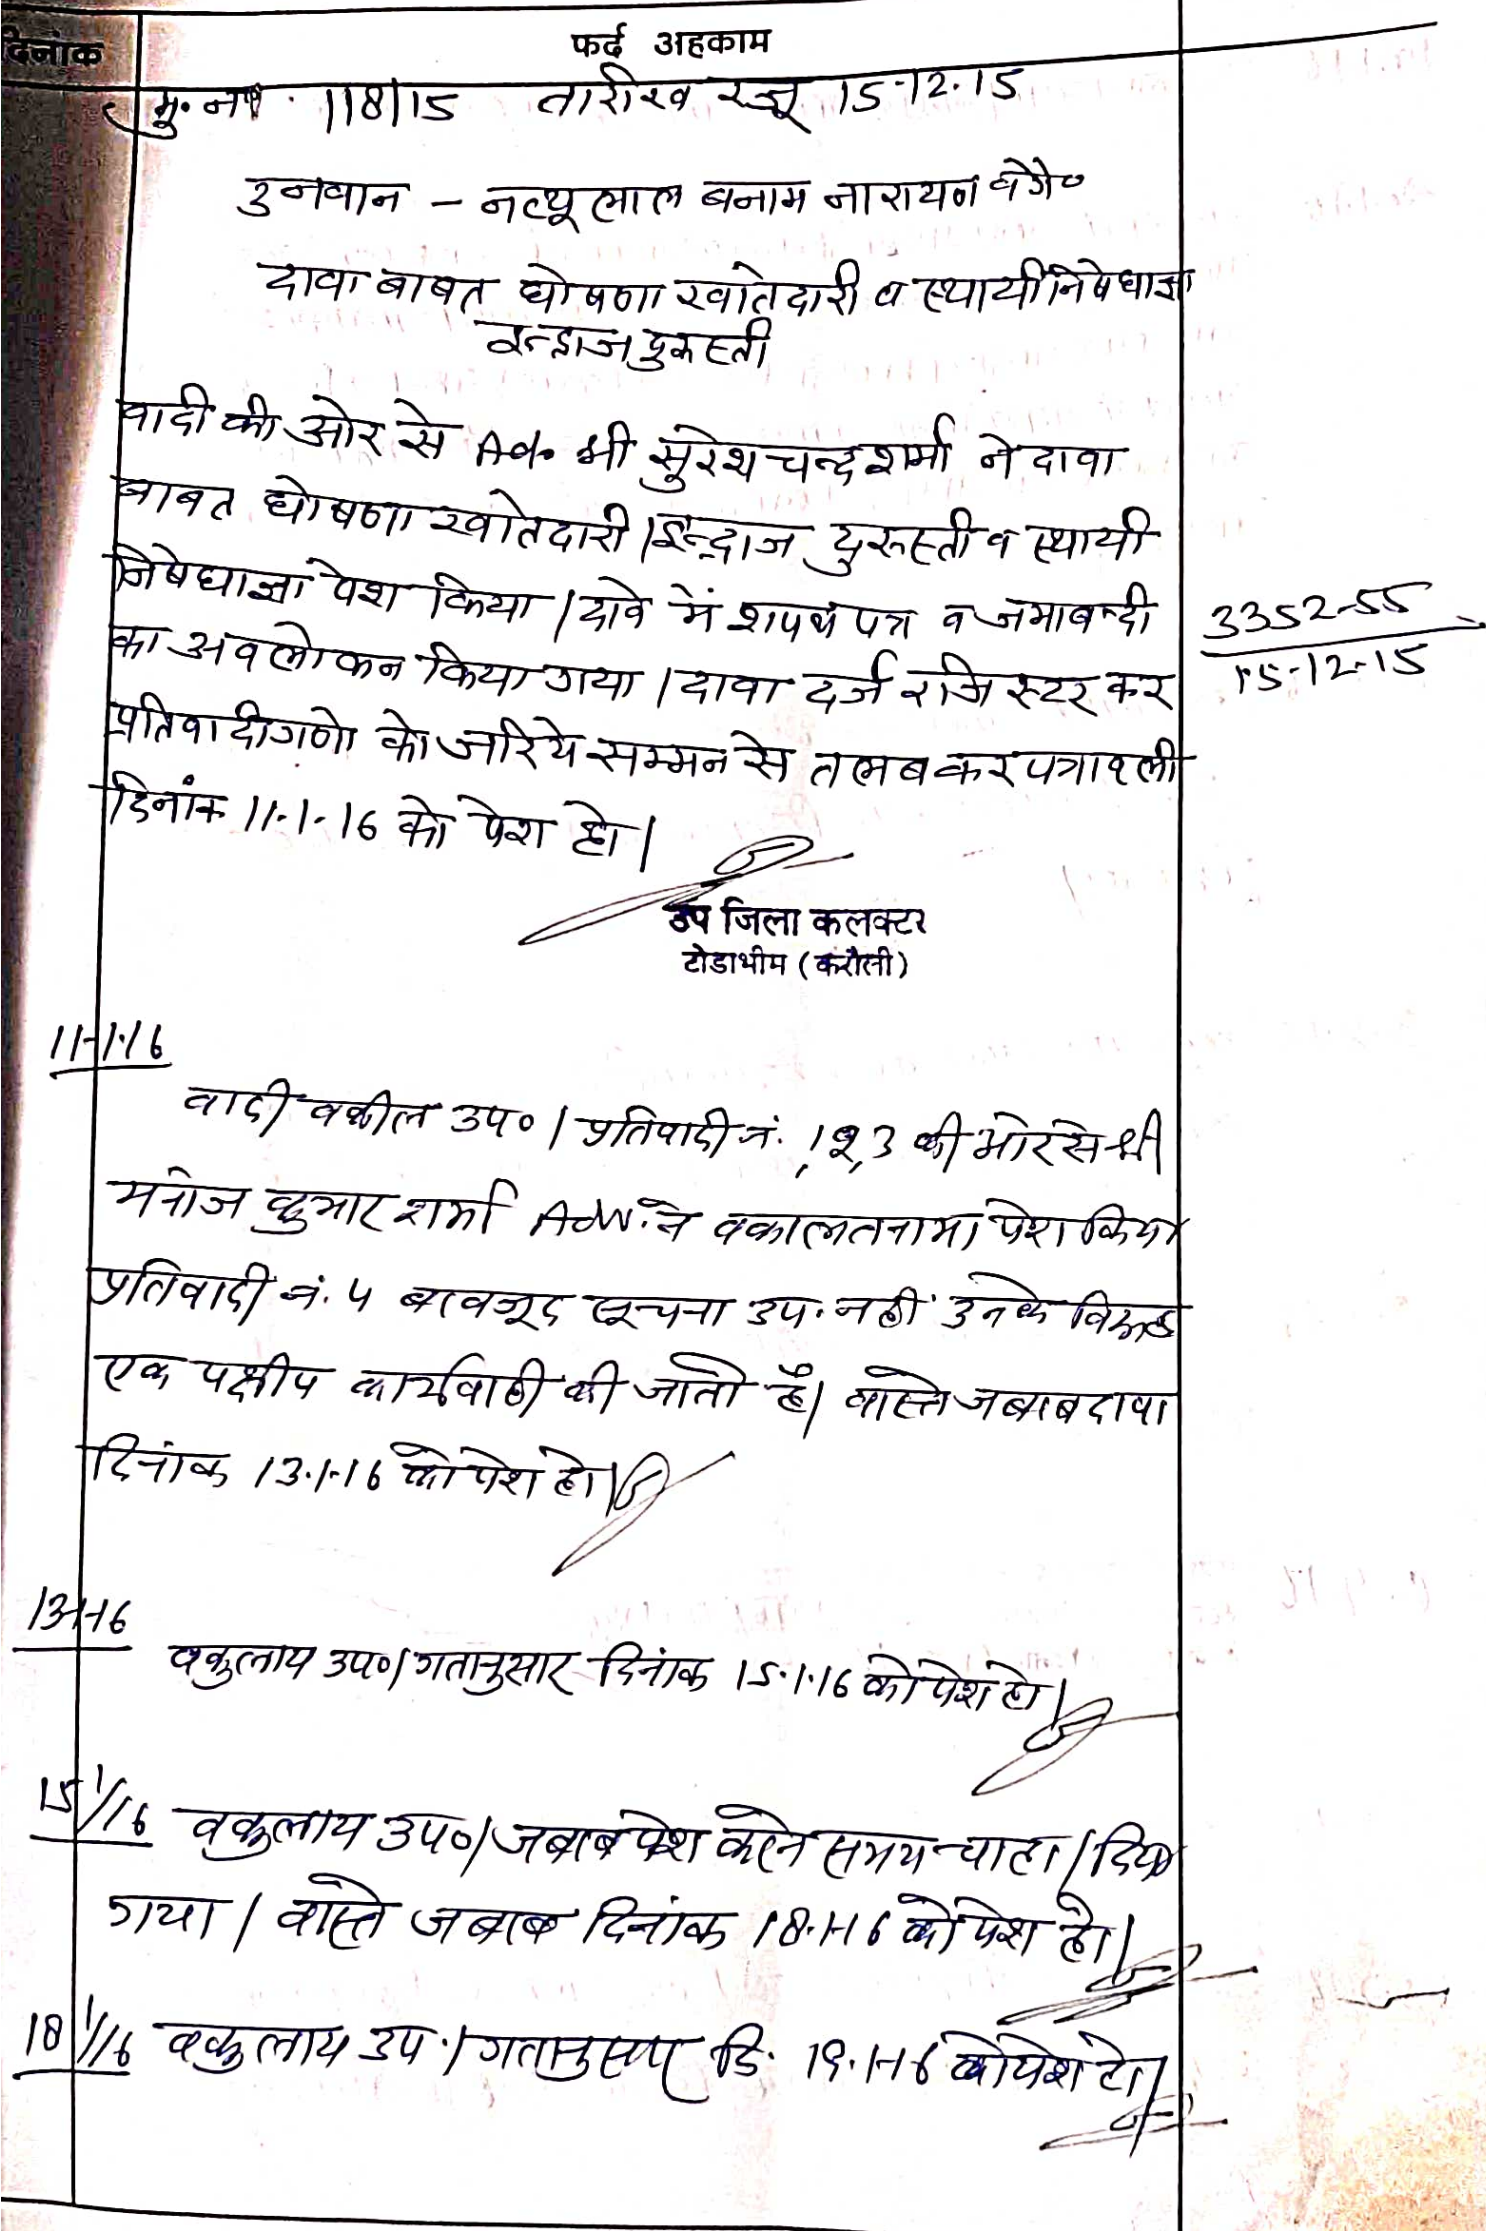 दिनांक
फर्द अहकाम
मु. नं. 118/15 तारीख रजू 15-12-15
उनवान - नत्थूलाल बनाम नारायण वगै०
दावा बाबत घोषणा खातेदारी व स्थायी निषेधाज्ञा
इन्द्राज दुरुस्ती
वादी की ओर से Ad. श्री सुरेश चन्द शर्मा ने दावा
बाबत घोषणा खातेदारी / इन्द्राज दुरुस्ती व स्थायी
निषेधाज्ञा पेश किया । दावे में शपथ पत्र व जमाबन्दी
3352-55
का अवलोकन किया गया । दावा दर्ज रजिस्टर कर
15-12-15
प्रतिवादीगणो को जरिये सम्मन से तलब कर पत्रावली
दिनांक 11-1-16 को पेश हो ।
उप जिला कलक्टर
टोडाभीम (करौली)
11-1-16
वादी वकील उप० । प्रतिवादी नं. 1,2,3 की ओर से श्री
मनोज कुमार शर्मा Adv. ने वकालतनामा पेश किया
प्रतिवादी नं. 4 बावजूद सूचना उप. नहीं उनके विरूद्ध
एक पक्षीय कार्यवाही की जाती है । वास्ते जबाब दावा
दिनांक 13-1-16 को पेश हो ।
13-1-16
वकुलाय उप० । गतानुसार दिनांक 15-1-16 को पेश हो ।
15/1/16 वकुलाय उप० । जबाब पेश करने समय चाहा । दिया
गया । वास्ते जबाब दिनांक 18-1-16 को पेश हो ।
18/1/16 वकुलाय उप. । गतानुसार दि. 19-1-16 को पेश हो ।